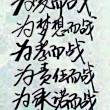 为梦想而战
为爱而战
为责任而战
为承诺而战